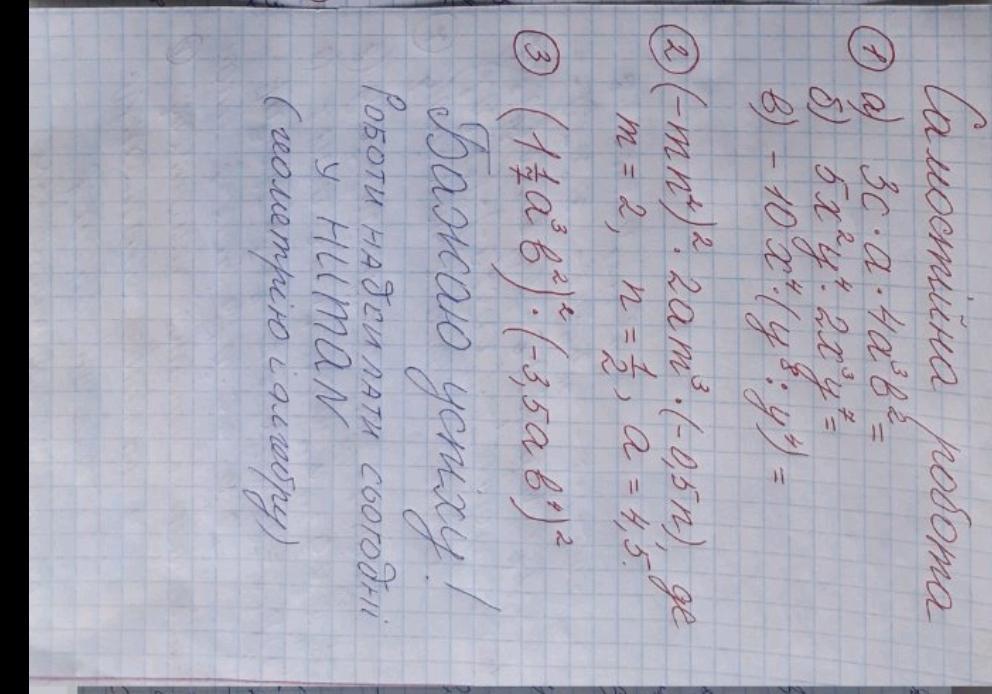 Самостійна робота
① а) 3c · a · 4a³b² =
б) 5x²y⁴ · 2x³y⁷ =
в) - 10x⁴ · (y⁸ : y⁴) =
② (-mn⁴)² · 2am³ · (-0,5n), де
m = 2, n = 1/2, a = 4,5.
③ (1 1/7 a³b²)² · (-3,5ab⁴)²
Бажаю успіху!
Роботи надсилати сьогодні
у HUMAN
(геометрію і алгебру)